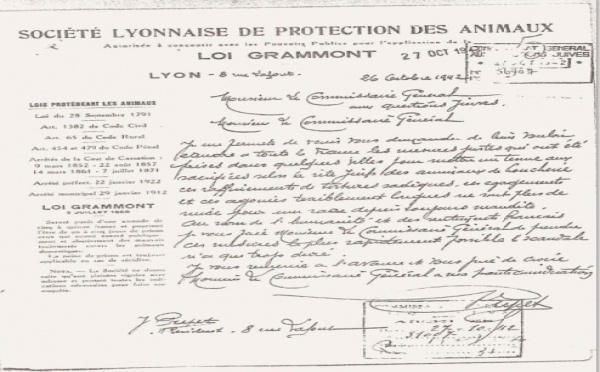 SOCIÉTÉ LYONNAISE DE PROTECTION DES ANIMAUX
Autorisée à concourir avec les Pouvoirs Publics pour l'application de la
LOI GRAMMONT
27 OCT 19
GENERAL
JUIVES
LYON - 8 rue Lafont
26 Octobre 1942
Monsieur le Commissaire Général
aux questions Juives.
LOIS PROTÉGEANT LES ANIMAUX
Loi du 28 Septembre 1791
Art. 1382 du Code Civil
Art. 65 du Code Rural
Art. 454 et 479 du Code Pénal
Arrêtés de la Cour de Cassation :
9 mars 1852 - 22 août 1857
14 mars 1861 - 7 juillet 1871
Arrêté préfect. 22 janvier 1922
Arrêté municipal 29 janvier 1912
LOI GRAMMONT
2 JUILLET 1850
Monsieur le Commissaire Général
Je me permets de venir vous demander de bien vouloir
étendre à toute la France les mesures justes qui ont été
prises dans quelques villes pour mettre un terme aux
sacrifices selon le rite juif des animaux de boucherie
ces raffinements de tortures sadiques, ces égorgements
et ces agonies terriblement longues ne sont plus de
mise pour une race depuis toujours maudite.
Au nom de l'humanité et des sentiments français
je vous prie Monsieur le Commissaire Général de prendre
ces mesures le plus rapidement possible le scandale
n'a que trop duré.
Je vous remercie à l'avance et vous prie de croire
Monsieur le Commissaire Général à nos hautes considérations
Président - 8 rue Lafont
27-10-42